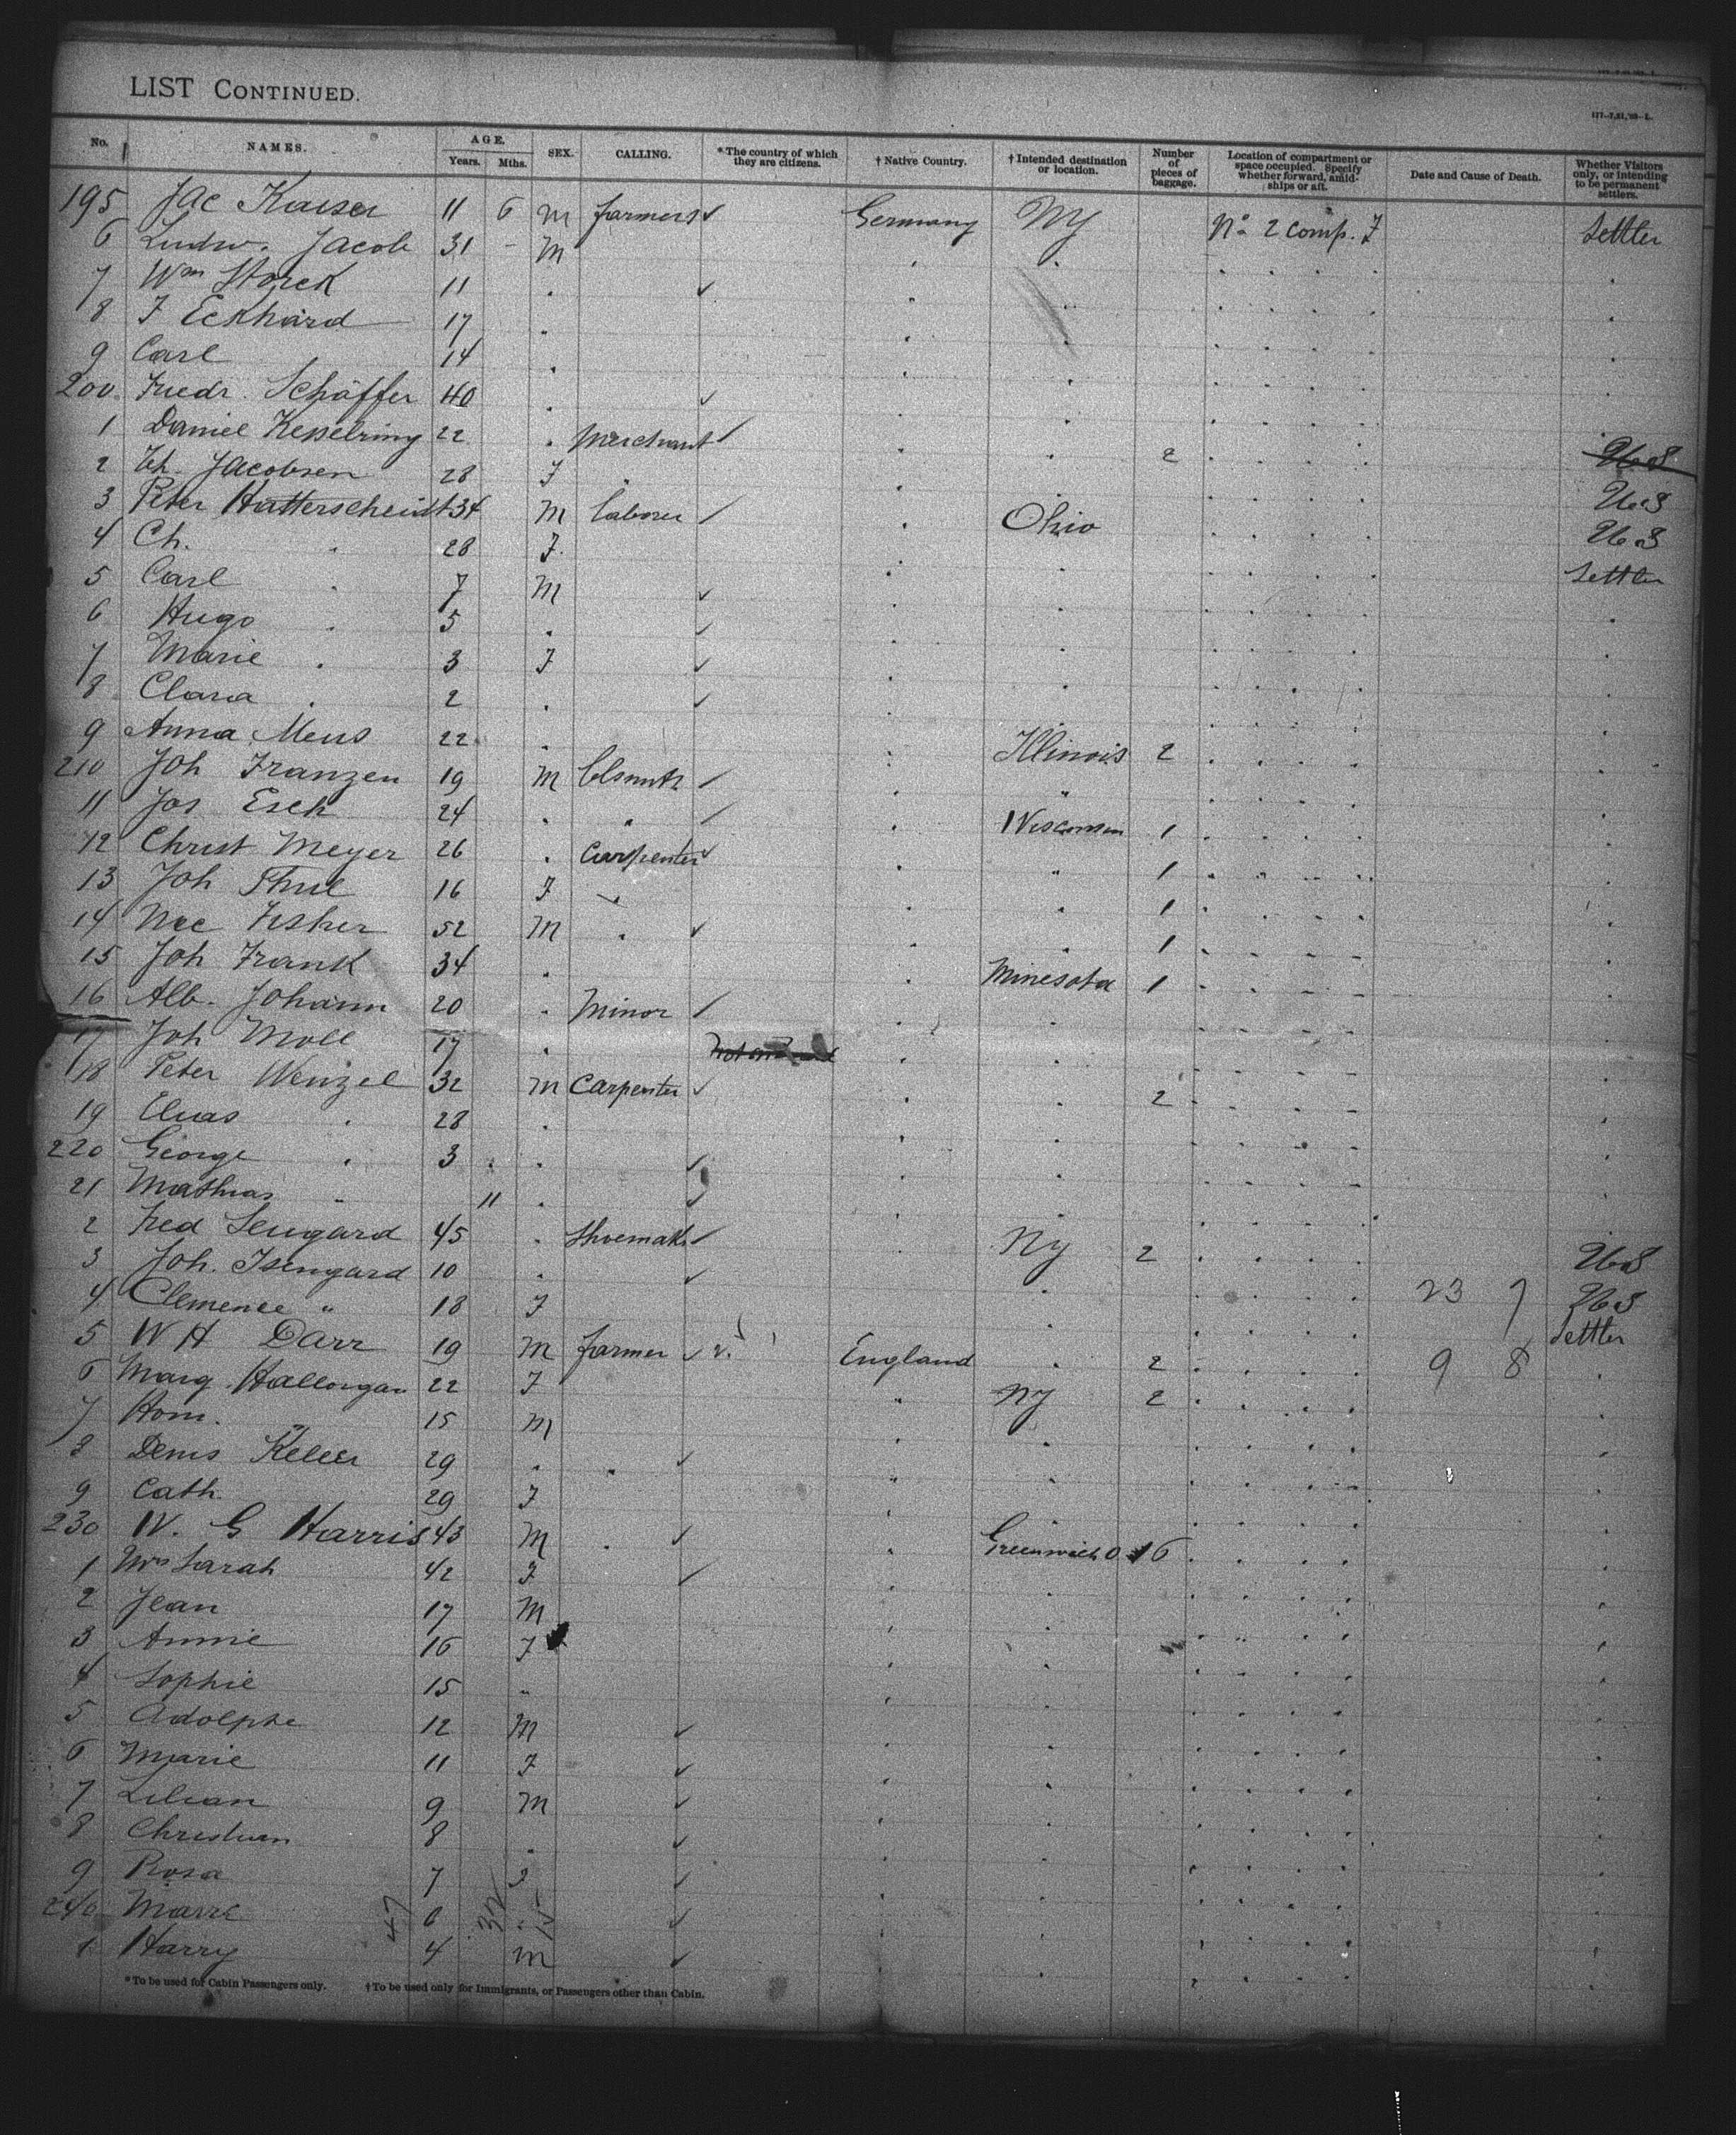 LIST CONTINUED.
No. NAMES. AGE. Years. Mths. SEX. CALLING. *The country of which they are citizens. †Native Country. †Intended destination or location. Number of pieces of baggage. Location of compartment or space occupied. Specify whether forward, amidships or aft. Date and Cause of Death. Whether Visitors only, or intending to be permanent settlers.
195 Jac Kaiser 11 6 M farmers ✓ Germany NY No 2 comp. F Settler
6 Ludw. Jacob 31 - M
7 Wm Storck 11 . ✓
8 F Eckhard 17 .
9 Carl 14 .
200 Friedr. Schäffer 40 . ✓
1 Daniel Kesselring 22 . Merchant ✓ 2
2 Ch. Jacobsen 28 F . U.S
3 Peter Hatterscheidt 34 M laborer ✓ Ohio U.S
4 Ch. . 28 F. Settler
5 Carl . 7 M ✓
6 Hugo . 5 . ✓
7 Marie . 3 F ✓
8 Clara . 2 . ✓
9 Anna Meus 22 . Illinois 2
210 Joh Franzen 19 M ✓ "
11 Jos Esch 24 . " ✓ Wisconsin 1
12 Christ Meyer 26 . Carpenter ✓ " 1
13 Joh Thul 16 F 1
14 Nic Fisher 52 M . ✓ 1
15 Joh Frank 34 . Minesota 1
16 Alb. Johann 20 . Minor ✓
17 Joh Moll 17 .
18 Peter Wenzel 32 M Carpenter ✓ 2
19 Elias . 28 .
220 George . 3 . ✓
21 Mathias " 11 . ✓
2 Fred Sengard 45 . Shoemakr ✓ NY 2 U.S
3 Joh. Isengard 10 . ✓ 23 7 U.S
4 Clemence " 18 F Settler
5 W H Darr 19 M farmer ✓ England . 2 9 8
6 Marg. Hallorgan 22 F " NY 2
7 Hom. " 15 M
8 Denis Keleer 29 . . ✓ "
9 Cath. 29 F
230 W. G Harris 43 M . ✓ Greenwich O 16
1 Mrs Sarah 42 F ✓
2 Jean 17 M
3 Annie 16 F
4 Sophie 15 "
5 Adolphe 12 M ✓
6 Marie 11 F ✓
7 Lilian 9 M ✓
8 Christian 8 . ✓
9 Rosa 7 ✓
240 Marie 6 . ✓
1 Harry 4 M ✓
47 32 15
*To be used for Cabin Passengers only. †To be used only for Immigrants, or Passengers other than Cabin.